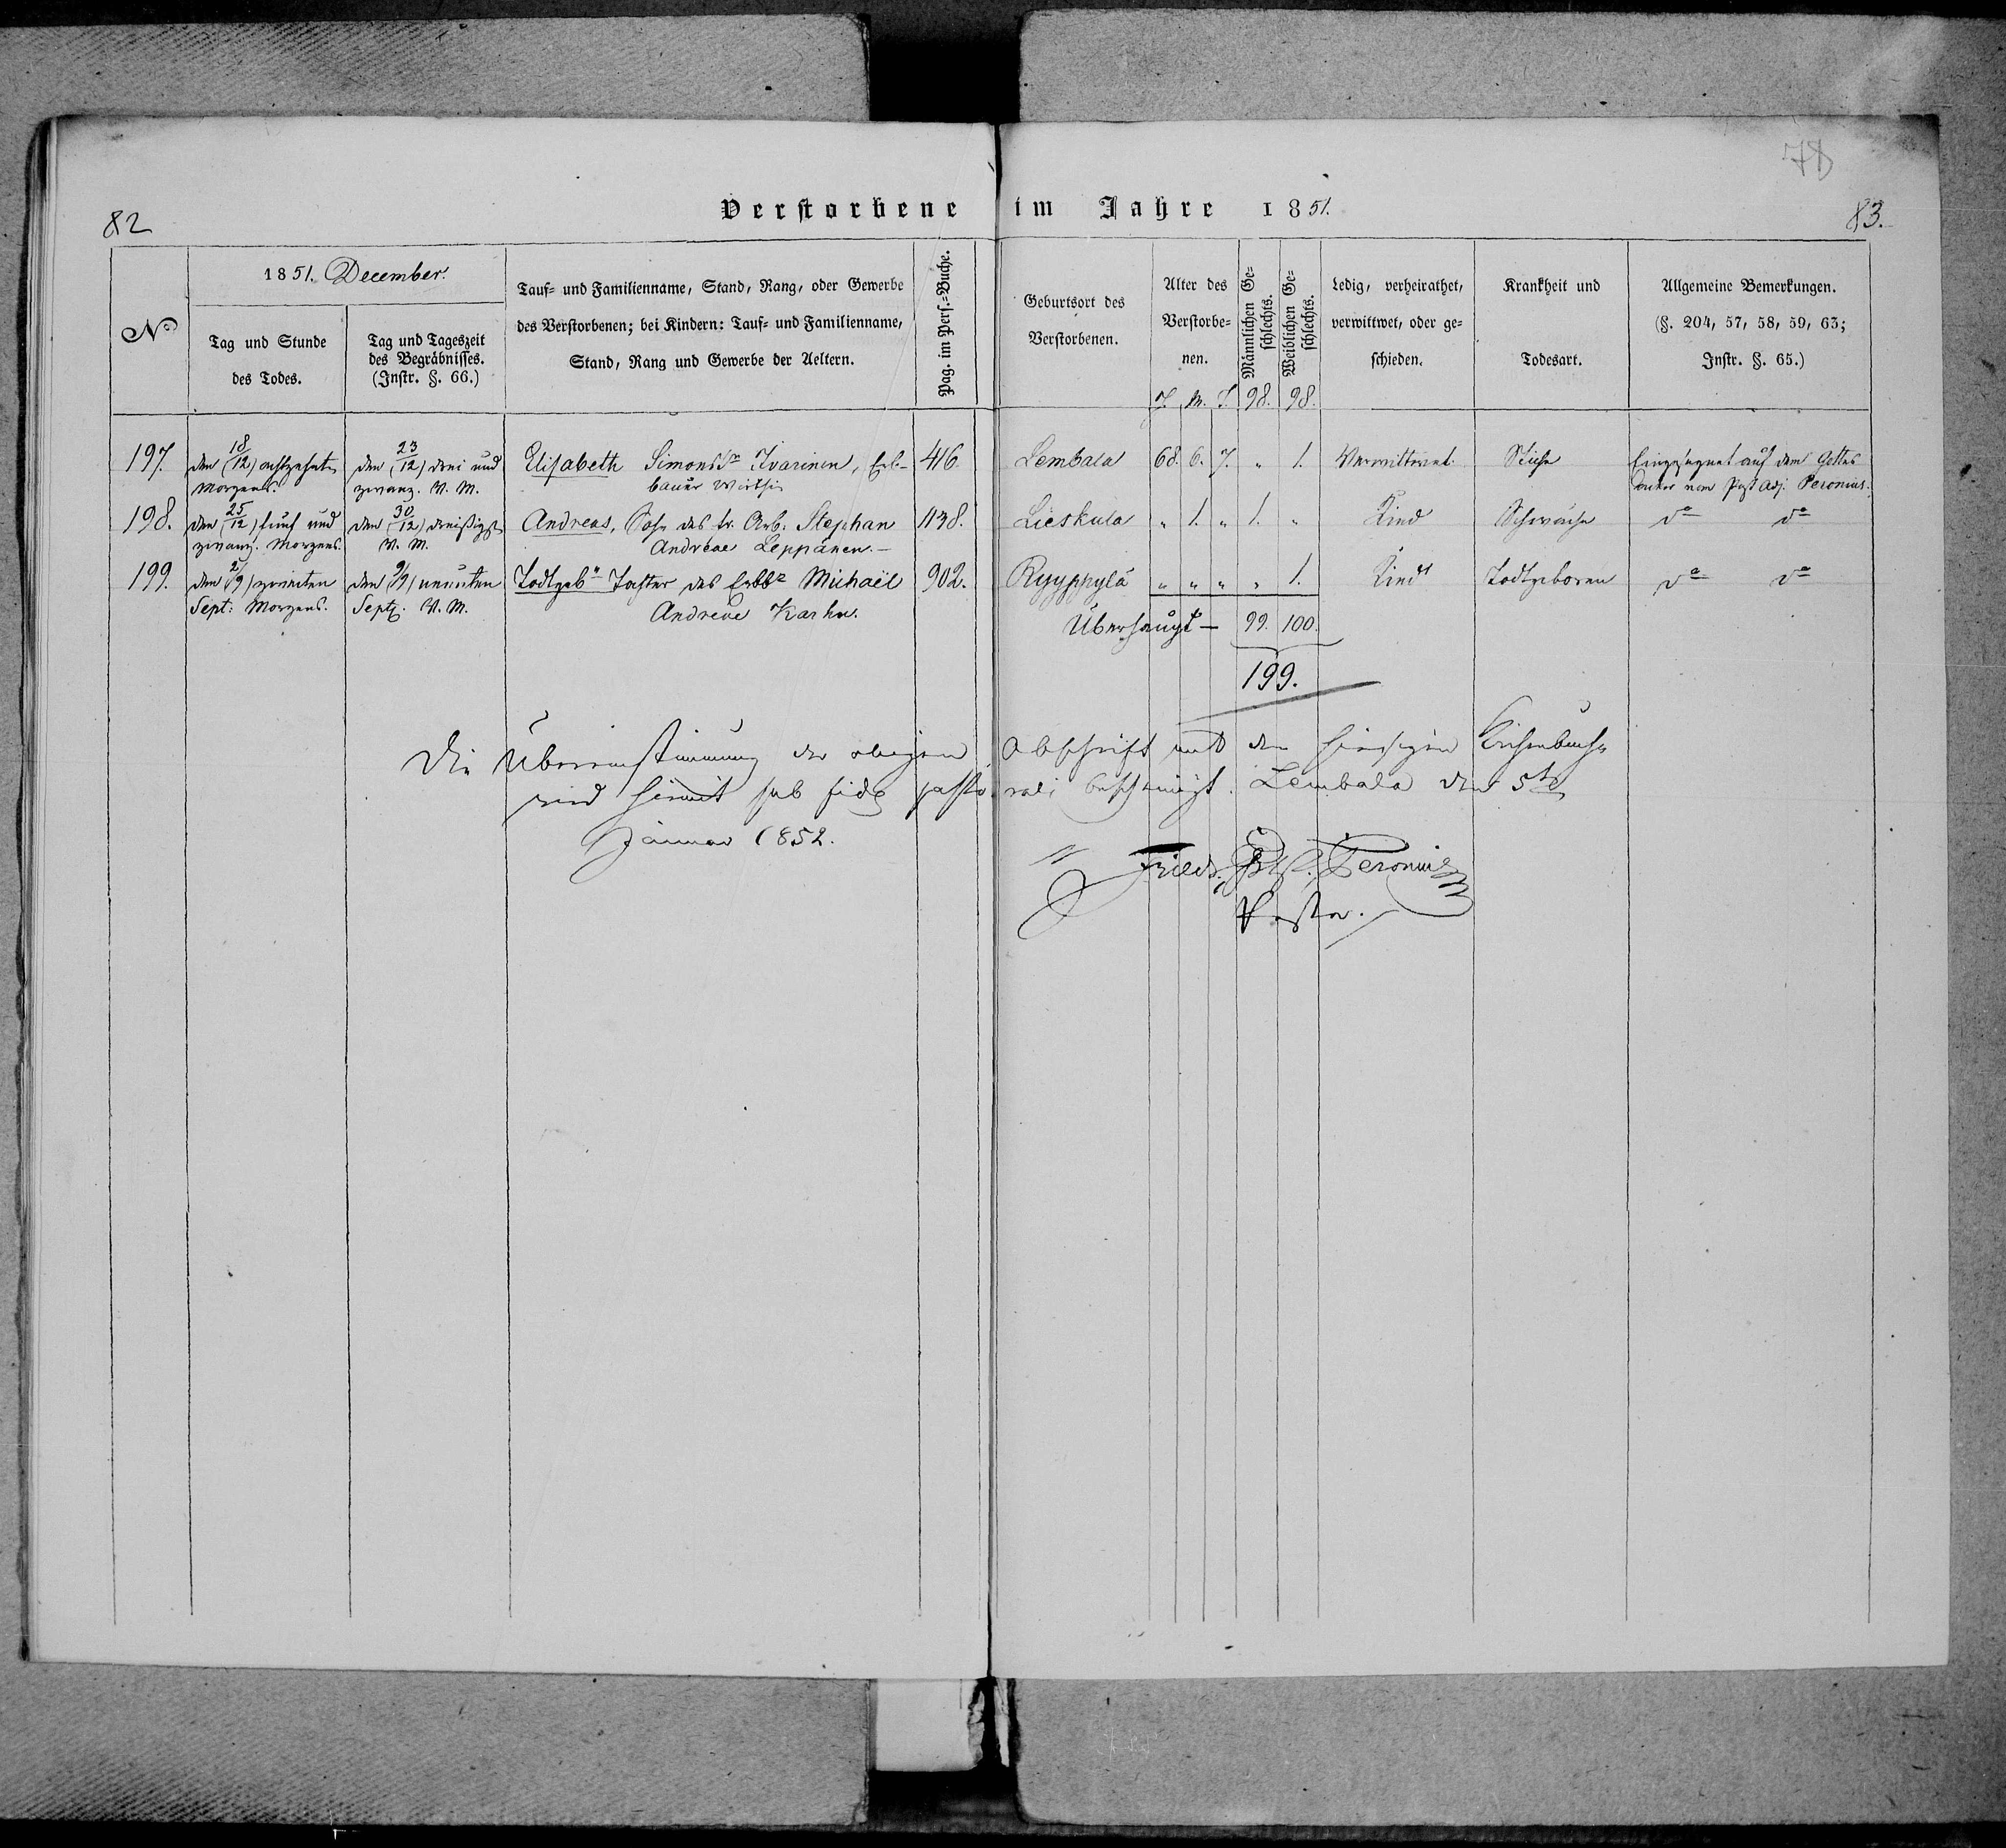 78
82
Verstorbene im Jahre 1851.
83.
No
1851. December.
Tag und Stunde
des Todes.
Tag und Tageszeit
des Begräbnisses.
(Instr. §. 66.)
Tauf- und Familienname, Stand, Rang, oder Gewerbe
des Verstorbenen; bei Kindern: Tauf- und Familienname,
Stand, Rang und Gewerbe der Aeltern.
Pag. im Pers.-Buche.
Geburtsort des
Verstorbenen.
Alter des
Verstorbe-
nen.
J. M. T.
Männlichen Ge-
schlechts.
98.
Weiblichen Ge-
schlechts.
98.
Ledig, verheirathet,
verwittwet, oder ge-
schieden.
Krankheit und
Todesart.
Allgemeine Bemerkungen.
(§. 204, 57, 58, 59, 63;
Instr. §. 65.)
197. den (18/12) achtzehnten den (23/12) drei und Elisabeth Simonstr Ivarinen, Erb- 416. Lembala 68. 6. 7. " 1. Verwittwet. Seuche Eingesegnet auf dem Gottes
Morgens. zwanz. V. M. bauer Wirthin acker vom Past. Adj. Peronius.
198. den (25/12) fünf und den (30/12) dreißigst Andreas, Sohn des Arb. Stephan 1138. Lieskula " 1. " 1. " Kind Schwäche do do
zwanz. Morgens. V. M. Andreae Leppänen.
199. den (2/9) zweiten den (9/9) neunten Todtgeb. Tochter des Erbb. Michaël 902. Ryyppylä " " " " 1. Kind Todtgeboren do do
Sept. Morgens. Sept. V. M. Andreae Karhu.
Überhaupt — 99. 100.
199.
Die Übereinstimmung der obigen Abschrift mit dem hiesigen Kirchenbuche
wird hiermit sub fide pastorali bescheinigt. Lembala den 5te
Januar 1852.
Friedr. Peronius
Pastor.